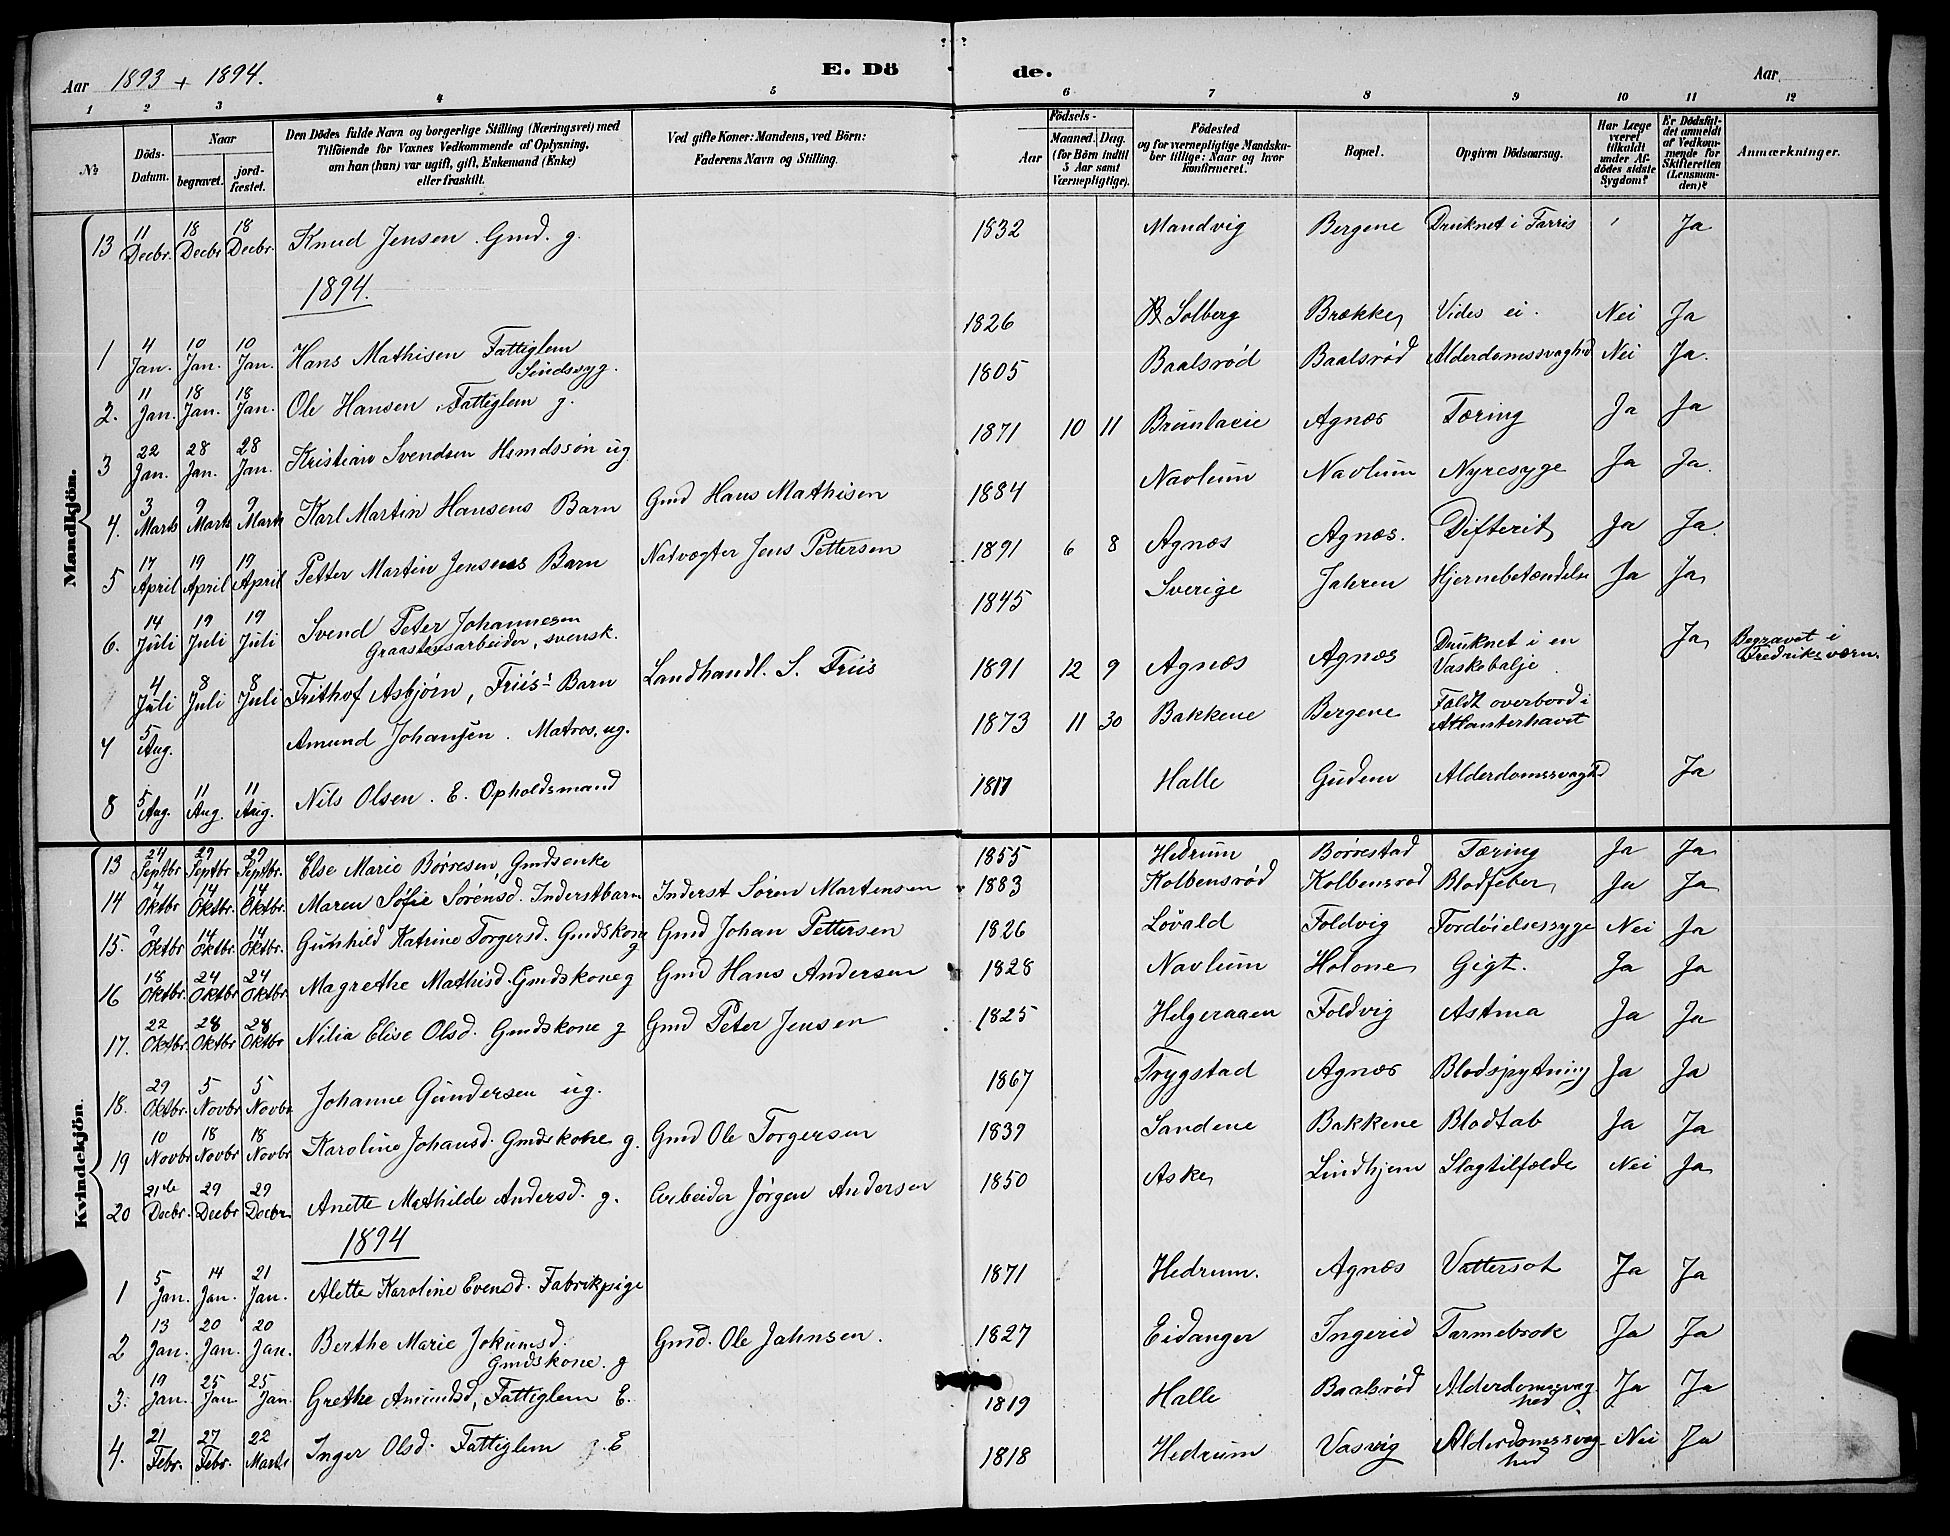 Aar 1893 + 1894. E. Dö de. Aar
1 2 3 4 5 6 7 8 9 10 11 12
№ Döds-Datum. Naar begravet. jordfæstet. Den Dödes fulde Navn og borgerlige Stilling (Næringsvei) med Tilföiende for Voxnes Vedkommende af Oplysning, om han (hun) var ugift, gift, Enkemand (Enke) eller fraskilt. Ved gifte Koner: Mandens, ved Börn: Faderens Navn og Stilling. Födsels- Aar Maaned. Dag. (for Börn indtil 5 Aar samt Værnepligtige). Födested og for værnepligtige Mandskaber tillige: Naar og hvor konfirmeret. Bopæl. Opgiven Dödsaarsag. Har Læge været tilkaldt under Afdödes sidste Sygdom? Er Dödsfaldet anmeldt af Vedkommende for Skifteretten (Lensmanden)? Anmærkninger.
Mandkjön.
13 11 Decbr. 18 Decbr 18 Decbr. Knud Jensen. Gmd. g. 1832 Mandvig Bergene Druknet i Farris ' Ja
1894.
1 4 Jan. 10 Jan. 10 Jan. Hans Mathisen Fattiglem Sindssyg. 1826 Solberg Brække Vides ei. Nei Ja
2. 11 Jan. 18 Jan. 18 Jan. Ole Hansen, Fattiglem g. 1805 Baalsrød Baalsrød Alderdomssvaghed Nei Ja.
3 22 Jan. 28 Jan. 28 Jan. Kristian Svendsen Hsmdssøn ug. 1871 10 11 Brunlaeie Agnæs Tæring Ja Ja
4. 3 Marts 9 Marts 9 Marts Karl Martin Hansens Barn Gmd Hans Mathisen 1884 Navlum Navlum Nyresyge Ja Ja.
5 17 April 19 April 19 April Petter Martin Jensens Barn Natvogter Jens Pettersen 1891 6 8 Agnæs Agnæs. Difterit Ja Ja.
6. 14 Juli 19 Juli 19 Juli Svend Peter Johannesen Graastensarbeider, svensk. 1845 Sverige Jahren Hjernebetændelse Ja Ja
4 Juli 8 Juli 8 Juli Frithof Asbjørn, Friis' Barn Landhandl. S. Friis 1891 12 9 Agnæs Agnæs Druknet i en Vaskebalje. Ja Begravet i Fredriksværn.
7 5 Aug. Amund Johansen. Matros, ug. 1873 11 30 Bakkene Bergene Faldt overbord i Atlanterhavet
8 5 Aug. 11 Aug. 11 Aug. Nils Olsen. E. Opholdsmand 1817 Halle Gudem Alderdomssvaghd Ja
Kvindekjön.
13 24 Septbr 29 Septbr 29 Septbr. Else Marie Børresen, Gmdsenke 1855 Hedrum Borrestad Tæring Ja Ja
14 7 Oktbr 14 Oktbr. 14 Oktbr. Maren Sofie Sørensd. Inderstbarn Inderst Søren Martensen 1883 Kolbensrød Kolbensrød Blodfeber Ja Ja
15. 9 Oktbr 14 Oktbr. 14 Oktbr. Gunhild Katrine Torgersd. Gmdskone g Gmd Johan Pettersen 1826 Løvald Foldvig Fordøielsessyge Nei Ja
16 18 Oktbr. 24 Oktbr 24 Oktbr Magrethe Mathisd. Gmdskone g Gmd Hans Andersen 1828 Navlum Holone Gigt. Ja Ja
17. 22 Oktbr. 28 Oktbr 28 Oktbr Nilia Elise Olsd. Gmdskone g Gmd Peter Jensen 1825 Helgeraaen Foldvig Astma Ja Ja
18. 29 Oktbr. 5 Novbr 5 Novbr Johanne Gundersen ug. 1867 Trygstad Agnæs Blodspytning Ja Ja
19 10 Novbr 18 Novbr 18 Novbr Karoline Johansd. Gmdskone g. Gmd Ole Torgersen 1839 Sandene Bakkene Blodtab Ja Ja
20 21de Decbr. 29 Decbr 29 Decbr Anette Mathilde Andersd. g. Arbeider Jørgen Andersen 1850 Aske Lindhjem Slagtilfælde Nei Ja
1894
1 5 Jan. 14 Jan. 21 Jan. Alette Karoline Evensd. Fabrikpige 1871 Hedrum. Agnæs Vattersot Ja Ja
2 13 Jan. 20 Jan. 20 Jan. Berthe Marie Jokumsd. Gmdskone. g Gmd. Ole Jahnsen. 1827 Eidanger Ingerid Tarmebrok Ja Ja
3. 19 Jan. 25 Jan 25 Jan Grethe Amundsd, Fattiglem E. 1819 Halle Baalsrød Alderdomssvaghed Ja Ja
4. 21 Febr. 27 Febr. 22 Marts Inger Olsd. Fattiglem g. E 1818 Hedrum Vasvig Alderdomssvaghed Nei Ja